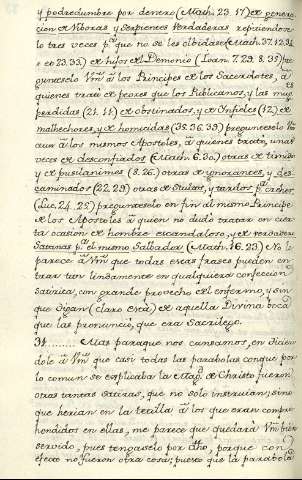 y podredumbre por dentro (Math. 23. 17) de genera-
cion de Viboras, y Serpientes Verdaderas repitiendose-
lo tres veces pª que no se les olbidase (Math. 37. 12. 34
23. 33.) de hijos del Demonio (Ioan. 7. 29. 8. 35) pre
guntaselo Vm. â los Principes de los Sacerdotes, â
quienes trató de peores que los Publicanos, y las mug.
perdidas (21. 44) de obstinados, y de Infieles (12) de
malhechores, y de homicidas (35. 36. 39) pregunteselo Vm
aun â los mismos Apostoles, â quienes trató, unas
veces de desconfiados (Math. 6. 30) otras de timidos
y de pusilanimes (8. 26.) otras de ignorantes, y des-
caminados (22. 29) otras de Stultos, y tardos pª creher
(Luc. 24. 25) pregunteselo en fin al mismo Principe
de los Apostoles â quien no dudó tratar en cier-
ta ocasion de hombre escandaloso, y de verdadero
Satanas pª el mismo Salbador (Math. 16. 23) No le
parece â Vm. que todas esas frases pueden en-
trar tan lindamente en qualquiera confeccion
Satirica, con grande provecho del enfermo, y sin
que digan (claro está) de aquella Divina boca
que las pronunció, que era Sacrilego.
34 ....... Mas paraque nos cansamos, en dicien
dole â Vm. que casi todas las parabolas con que por
lo comun se esplicaba la Mag. de Christo fueron
otras tantas satiras, que no solo instruian, sino
que herian en la tetilla â los que eran compre-
hendidos en ellas, me parece que quedará Vm. bien
servido, pues tengaselo por dho, porque con
efecto no fueron otra cosa; puesto que la parabola